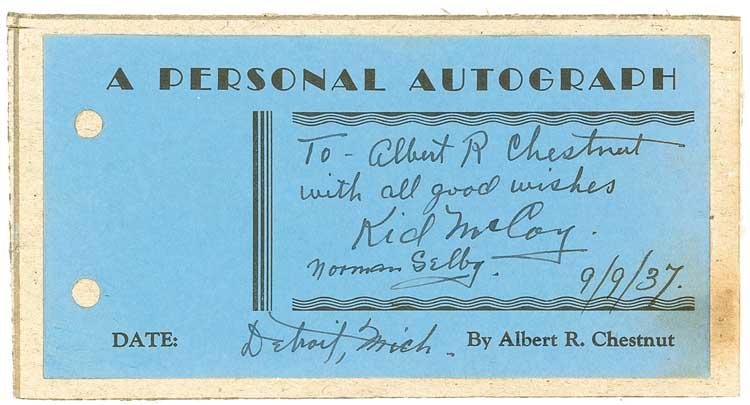 A PERSONAL AUTOGRAPH
To - Albert R Chestnut
with all good wishes
Kid McCoy.
Norman Selby.
9/9/37.
DATE: Detroit, Mich. By Albert R. Chestnut